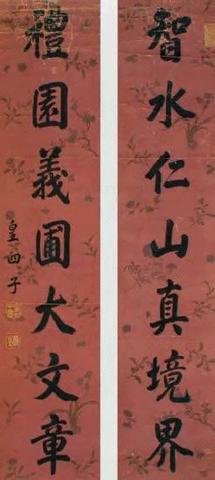 智水仁山真境界
禮園義圃大文章
皇四子